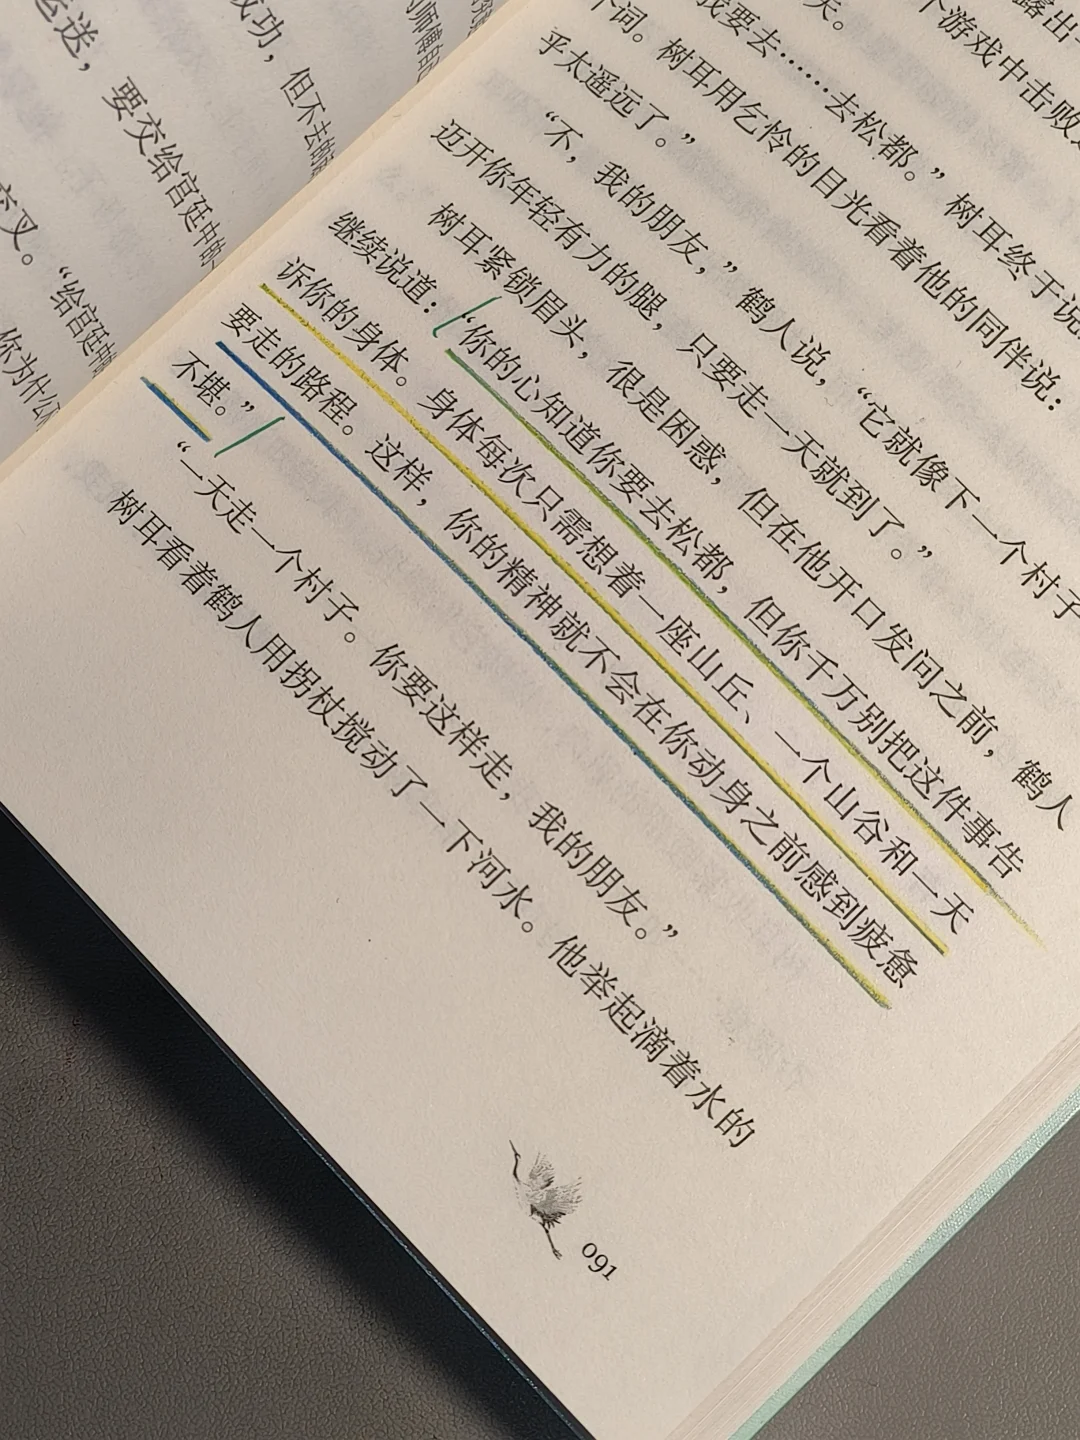 运送，
成功，
要交给宫廷中的
但不去
交叉。
“给宫廷中
你为什么
露出
个游戏中击败
天。
我要去……去松都。”树耳终于说
个词。树耳用乞怜的目光看着他的同伴说：
乎太遥远了。”
“不，我的朋友，”鹤人说，“它就像下一个村子
迈开你年轻有力的腿，只要走一天就到了。”
树耳紧锁眉头，很是困惑，但在他开口发问之前，鹤人
继续说道：“你的心知道你要去松都，但你千万别把这件事告
诉你的身体。身体每次只需想着一座山丘、一个山谷和一天
要走的路程。这样，你的精神就不会在你动身之前感到疲惫
不堪。”
“一天走一个村子。你要这样走，我的朋友。”
树耳看着鹤人用拐杖搅动了一下河水。他举起滴着水的
091